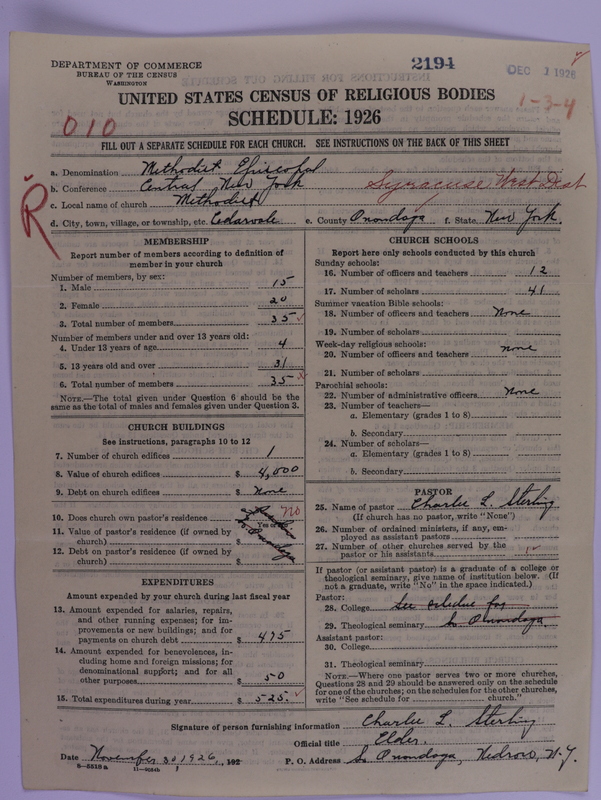 DEPARTMENT OF COMMERCE
BUREAU OF THE CENSUS
WASHINGTON
2194
DEC 1 1926
UNITED STATES CENSUS OF RELIGIOUS BODIES
SCHEDULE: 1926
1-3-4
010
FILL OUT A SEPARATE SCHEDULE FOR EACH CHURCH. SEE INSTRUCTIONS ON THE BACK OF THIS SHEET
a. Denomination Methodist Episcopal
b. Conference Central New York Syracuse West Dist
c. Local name of church Methodist
d. City, town, village, or township, etc. Cedarvale e. County Onondaga f. State New York.
R
MEMBERSHIP
Report number of members according to definition of
member in your church
Number of members, by sex:
1. Male 15
2. Female 20
3. Total number of members 35
Number of members under and over 13 years old:
4. Under 13 years of age 4
5. 13 years old and over 31
6. Total number of members 35
NOTE.—The total given under Question 6 should be
same as the total of males and females given under Question 3.
CHURCH BUILDINGS
See instructions, paragraphs 10 to 12
7. Number of church edifices 1
8. Value of church edifices $ 4,000
9. Debt on church edifices $ None
10. Does church own pastor's residence no
11. Value of pastor's residence (if owned by
church) $ So Onondaga
12. Debt on pastor's residence (if owned by
church) $
EXPENDITURES
Amount expended by your church during last fiscal year
13. Amount expended for salaries, repairs,
and other running expenses; for im-
provements or new buildings; and for
payments on church debt $ 475
14. Amount expended for benevolences, in-
cluding home and foreign missions; for
denominational support; and for all
other purposes $ 50
15. Total expenditures during year $ 525.
CHURCH SCHOOLS
Report here only schools conducted by this church
Sunday schools:
16. Number of officers and teachers 12
17. Number of scholars 41
Summer vacation Bible schools:
18. Number of officers and teachers None
19. Number of scholars
Week-day religious schools:
20. Number of officers and teachers none
21. Number of scholars
Parochial schools:
22. Number of administrative officers None
23. Number of teachers—
a. Elementary (grades 1 to 8)
b. Secondary
24. Number of scholars—
a. Elementary (grades 1 to 8)
b. Secondary
PASTOR
25. Name of pastor Charlie L. Sterling
(If church has no pastor, write "None")
26. Number of ordained ministers, if any, em-
ployed as assistant pastors
27. Number of other churches served by the
pastor or his assistants 1
If pastor (or assistant pastor) is a graduate of a college or
theological seminary, give name of institution below. (If
not a graduate, write "No" in the space indicated.)
Pastor:
28. College See schedule for
29. Theological seminary So Onondaga
Assistant pastor:
30. College
31. Theological seminary
NOTE.—Where one pastor serves two or more churches,
Questions 28 and 29 should be answered only on the schedule
for one of the churches; on the schedules for the other churches,
write "See schedule for church."
Signature of person furnishing information Charlie L. Sterling
Official title Elder.
Date November 30 1926, 192 P. O. Address So Onondaga, Nedrow, N.Y.
8-5518a 11-9034b